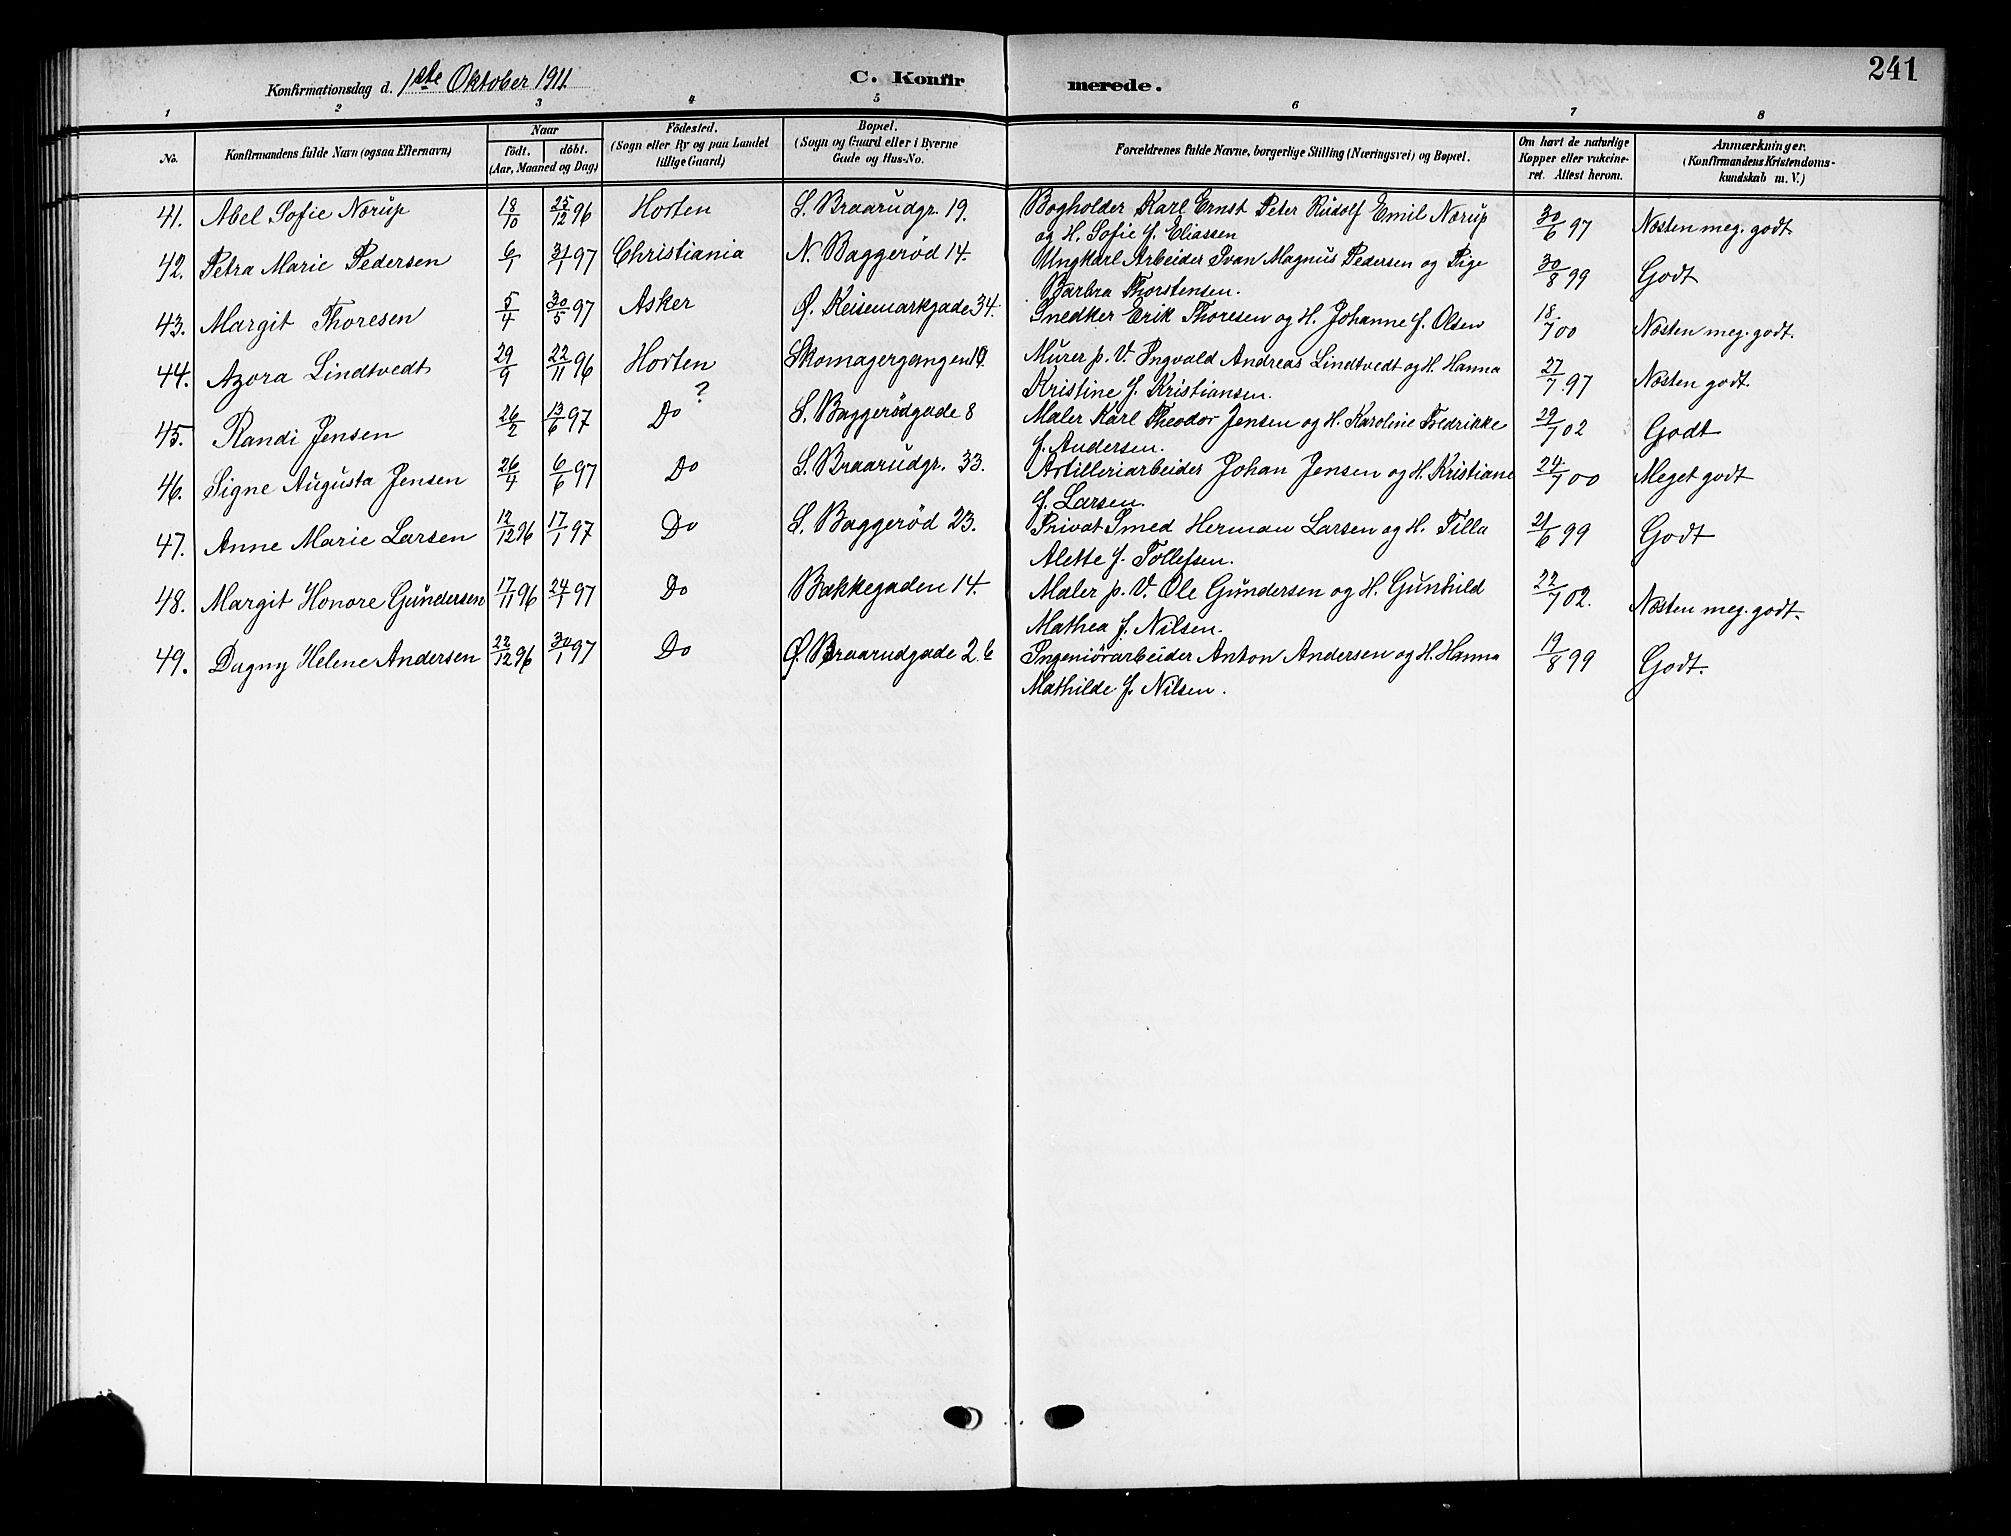 241
Konfirmationsdag d. 1ste Oktober 1911. C. Konfir merede.
1 2 3 4 5 6 7 8
No. Konfirmandens fulde Navn (ogsaa Efternavn) Naar født. døbt. (Aar, Maaned og Dag) Fødested. (Sogn eller By og paa Landet tillige Gaard) Bopæl. (Sogn og Gaard eller i Byerne Gade og Hus-No. Forældrenes fulde Navne, borgerlige Stilling (Næringsvei) og Bopæl. Om havt de naturlige Kopper eller vaksineret. Attest herom. Anmærkninger. (Konfirmandens Kristendomskundskab m. V.)
41. Abel Sofie Nørup 18/10 25/12 96 Horten S. Braarudgr. 19. Bogholder Karl Ernst Peter Rudolf Emil Nørup 30/6 97 Næsten meg. godt
og H. Sofie f. Eliassen
42. Petra Marie Pedersen 6/1 31/1 97 Christiania N. Baggerød 14. Ungkarl Arbeider Ivan Magnus Pedersen og Pige 30/8 99 Godt
Barbra Thorstensen.
43. Margit Thoresen 5/4 30/5 97 Asker Ø. Keisemarkgade 34. Snedker Erik Thoresen og H. Johanne f. Olsen 18/7 00 Næsten meg. godt.
44. Azora Lindtvedt 29/9 22/11 96 Horten Skomagergangen 10. Murer p. V. Ingvald Andreas Lindtvedt og H. Hanna 27/7 97 Næsten godt
Kristine f. Kristiansen.
45. Randi Jensen 26/2 13/6 97 ? Do S. Baggerødgade 8 Maler Karl Theodor Jensen og H. Karoline Fredrikke 29/7 02 Godt
f. Andersen.
46. Signe Augusta Jensen 26/4 6/6 97 Do S. Braarudgr. 33. Artilleriarbeider Johan Jensen og H. Kristiane 24/7 00 Meget godt
f. Larsen.
47. Anne Marie Larsen 12/12 96 17/1 97 Do S. Baggerød 23. Privat Smed Herman Larsen og H. Tilla 21/6 99 Godt
Alette f. Tollefsen.
48. Margit Honore Gundersen 17/11 96 24/1 97 Do Bakkegaden 14. Maler p. V. Ole Gundersen og H. Gunhild 22/7 02. Næsten meg. godt.
Mathea f. Nilsen.
49. Dagny Helene Andersen 22/12 96 30/1 97 Do Ø. Braarudgade 26 Ingeniørarbeider Anton Andersen og H. Hanna 19/8 99 Godt.
Mathilde f. Nilsen.